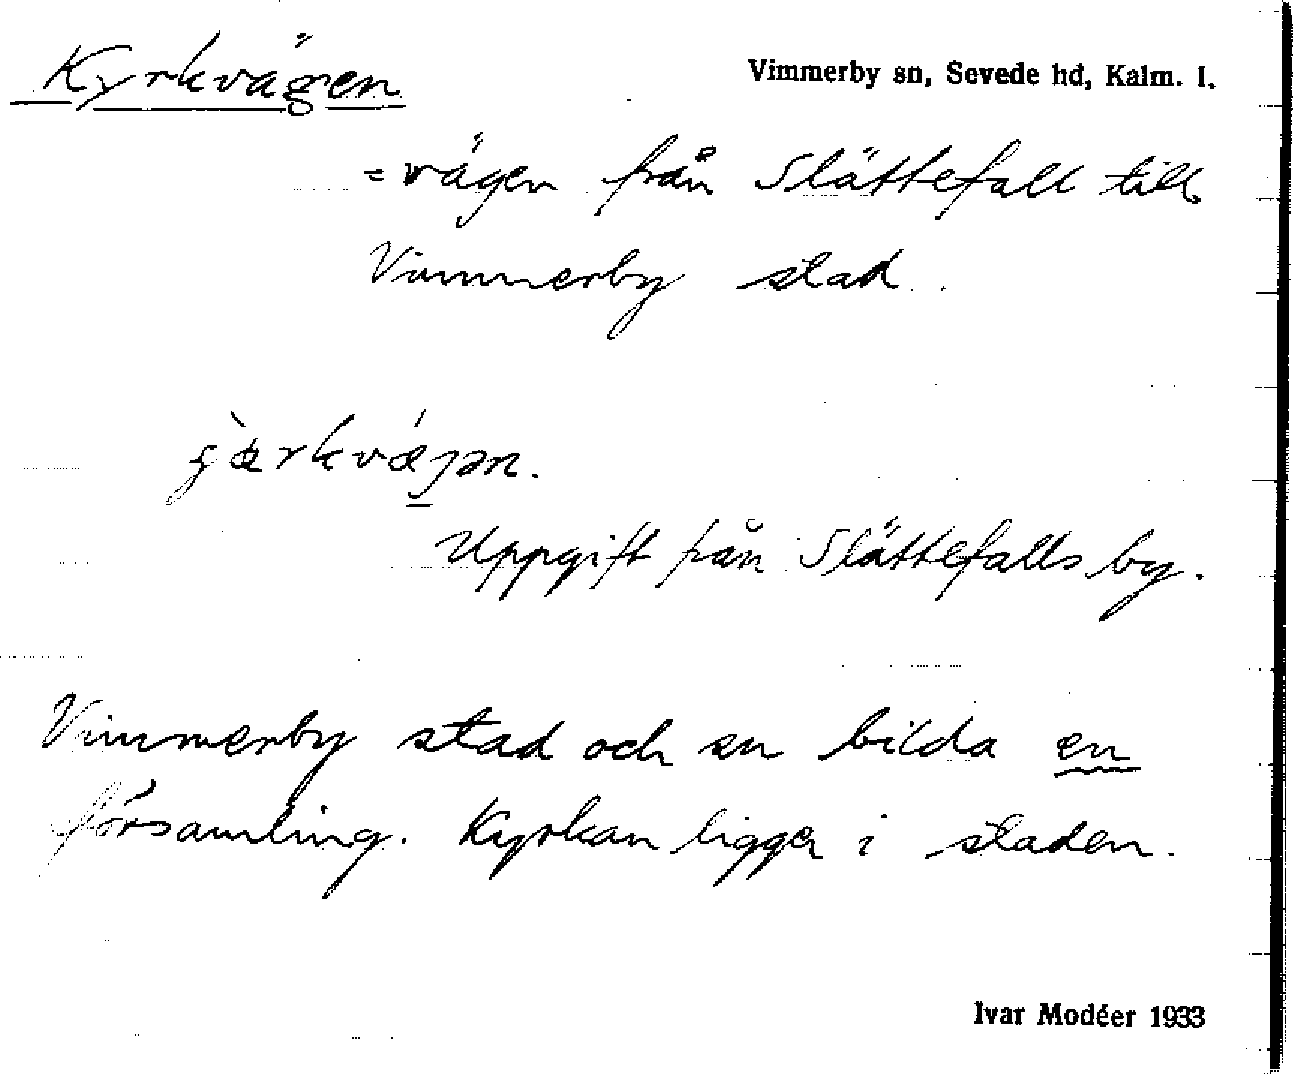 Kyrkvägen
Vimmerby sn, Sevede hd, Kalm. l.
=vägen från Slättefall till
Vimmerby stad.
Uppgift från Slättefalls by.
Vimmerby stad och sn bilda en
församling. Kyrkan ligger i staden.
Ivar Modéer 1933